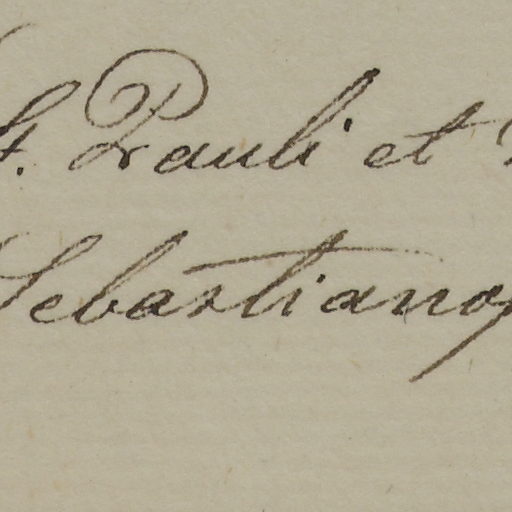 St. Pauli et
Sebastianop